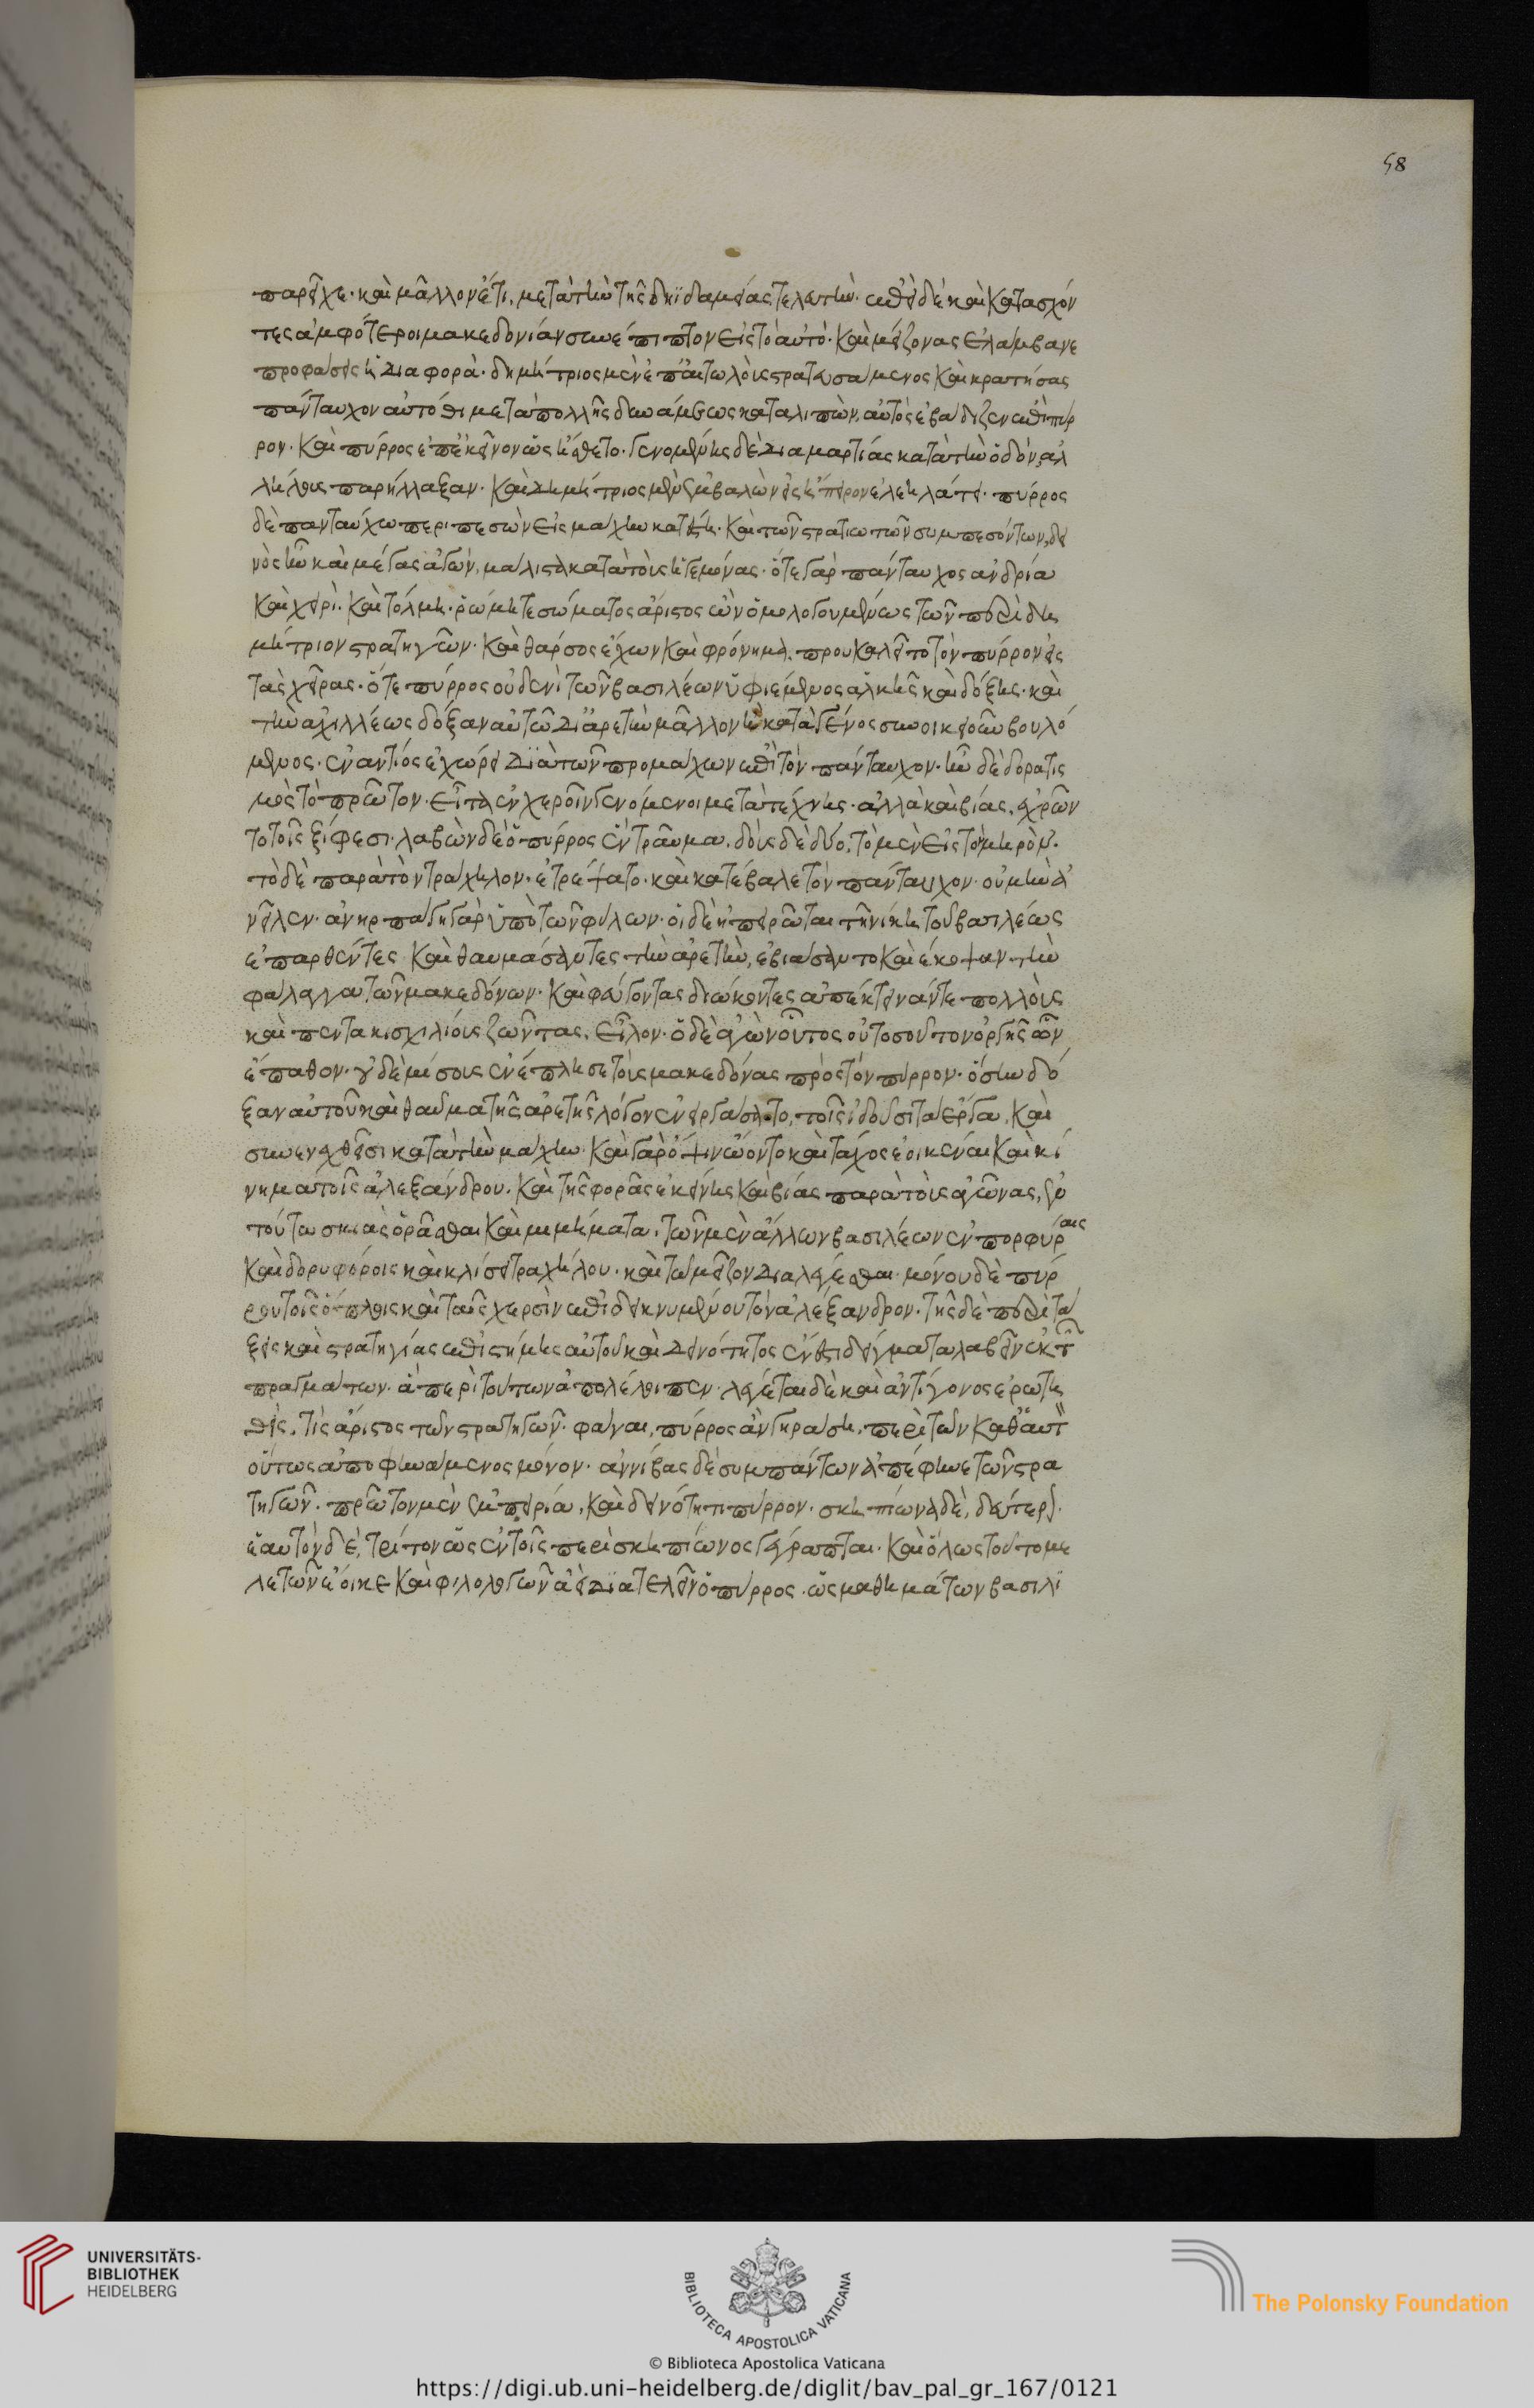 58
παρεῖχε· καὶ μᾶλλον ἔτι, μετὰ τὴν τῆς δηϊδαμείας τελευτήν. ἐπεὶ δὲ καὶ κατασχόν
τες ἀμφότεροι μακεδονίαν συνέπιπτον εἰς τὸ αὐτό· καὶ μείζονας ἐλάμβανε
προφάσεις ἡ διαφορὰ· δημήτριος μὲν ἐπ' αἰτωλοὺς στρατευσάμενος καὶ κρατήσας
πάνταυχον αὐτόθι μετὰ πολλῆς δυνάμεως καταλιπὼν, αὐτὸς ἐβάδιζεν ἐπὶ πύρ
ρον· καὶ πύρρος ἐπ' ἐκεῖνον ὡς ᾔσθετο· γενομένης δὲ διαμαρτίας κατὰ τὴν ὁδὸν, ἀλ
λήλους παρήλλαξαν· καὶ δημήτριος μὲν ἐμβαλὼν εἰς ἤπειρον ἐλεηλάτει· πύρρος
δὲ πανταύχω περιπεσὼν εἰς μάχην κατέστη· καὶ τῶν στρατιωτῶν συμπεσόντων, δει
νὸς ἦν καὶ μέγας ἀγών, μάλιστα κατὰ τοὺς ἡγεμόνας· ὅ τε γὰρ πάνταυχος ἀνδρία
καὶ χειρὶ· καὶ τόλμη· ῥώμη τε σώματος ἄριστος ὢν ὁμολογουμένως τῶν περὶ δη
μήτριον στρατηγῶν· καὶ θάρσος ἔχων καὶ φρόνημα, προυκαλεῖτο τὸν πύρρον εἰς
τὰς χεῖρας· ὅ τε πύρρος οὐδενὶ τῶν βασιλέων ὑφιέμενος ἀλκῆς καὶ δόξης· καὶ
τὴν ἀχιλλέως δόξαν αὐτῶ δι' ἀρετὴν μᾶλλον ἢ κατὰ γένος συνοικειοῦν βουλό
μενος· ἐναντίος ἐχώρει διὰ τῶν προμάχων ἐπὶ τὸν πάνταυχον· ἦν δὲ δορατις
μὸς τὸ πρῶτον· εἶτα ἐν χεροῖν γενόμενοι μετὰ τέχνης· ἀλλὰ καὶ βίας, ἐχρῶν
το τοῖς ξίφεσι· λαβὼν δὲ ὁ πύρρος ἓν τραῦμα, δοὺς δὲ δύο, τὸ μὲν εἰς τὸν μηρὸν·
τὸ δὲ παρὰ τὸν τράχηλον· ἐτρέψατο· καὶ κατέβαλε τὸν πάνταυχον· οὐ μὴν ἀ
νεῖλεν· ἀνηρπάγη γὰρ ὑπὸ τῶν φίλων· οἱ δὲ ἠπειρῶται τῆ νίκη τοῦ βασιλέως
ἐπαρθέντες καὶ θαυμάσαντες τὴν ἀρετὴν, ἐβιάσαντο καὶ ἔκοψαν τὴν
φάλαγγα τῶν μακεδόνων· καὶ φεύγοντας διώκοντες ἀπέκτεινάν τε πολλοὺς
καὶ πεντακισχιλίους ζῶντας, εἷλον· ὁ δὲ ἀγὼν οὗτος οὐ τοσοῦτον ὀργῆς ὧν
ἔπαθον· οὐδὲ μίσους ἐνέπλησε τοὺς μακεδόνας πρὸς τὸν πύρρον· ὅσην δό
ξαν αὐτοῦ καὶ θαῦμα τῆς ἀρετῆς λόγον ἐνειργάσατο, τοῖς ἰδοῦσι τὰ ἔργα, καὶ
συνενεχθεῖσι κατὰ τὴν μάχην· καὶ γὰρ ὄψιν ὤοντο καὶ τάχος ἐοικέναι καὶ κί
νημα τοῖς ἀλεξάνδρου, καὶ τῆς φορᾶς ἐκείνης καὶ βίας παρὰ τοὺς ἀγῶνας, ἐν
τούτω σκιὰς ὁρᾶσθαι καὶ μιμήματα, τῶν μὲν ἄλλων βασιλέων ἐν πορφύραις
καὶ δορυφόροις καὶ κλίσει τραχήλου· καὶ τῶ μεῖζον διαλέγεσθαι· μόνου δὲ πύρ
ρου τοῖς ὅπλοις καὶ ταῖς χερσὶν ἐπιδεικνυμένου τὸν ἀλέξανδρον· τῆς δὲ περὶ τά
ξεις καὶ στρατηγίας ἐπιστήμης αὐτοῦ καὶ δεινότητος ἔνεστι δείγματα λαβεῖν ἐκ τῶν
πραγμάτων· ἃ περὶ τούτων ἀπολέλοιπεν· λέγεται δὲ καὶ ἀντίγονος ἐρωτη
θεὶς, τίς ἄριστος τῶν στρατηγῶν· φάναι, πύρρος ἂν γηράση, περὶ τῶν καθ' αὑτὸν
οὕτως ἀποφηνάμενος μόνον· ἀννίβας δὲ συμπάντων ἀπέφηνε τῶν στρα
τηγῶν· πρῶτον μὲν ἐμπειρία, καὶ δεινότητι πύρρον· σκηπίωνα δὲ, δεύτερον·
ἑαυτὸν δὲ, τρίτον ὡς ἐν τοῖς περὶ σκηπίωνος γέγραπται· καὶ ὅλως τοῦτο με
λετῶν ἔοικε καὶ φιλολογῶν ἀεὶ διατελεῖν ὁ πύρρος· ὡς μαθημάτων βασιλι
UNIVERSITÄTS-
BIBLIOTHEK
HEIDELBERG
BIBLIOTECA APOSTOLICA VATICANA
The Polonsky Foundation
© Biblioteca Apostolica Vaticana
https://digi.ub.uni-heidelberg.de/diglit/bav_pal_gr_167/0121